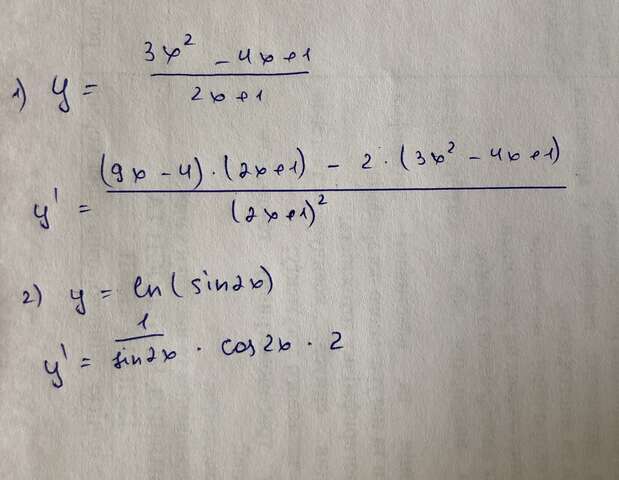 1) y = \frac{3x^2 - 4x + 1}{2x + 1}
y' = \frac{(9x - 4) \cdot (2x + 1) - 2 \cdot (3x^2 - 4x + 1)}{(2x + 1)^2}
2) y = ln(sin2x)
y' = \frac{1}{sin2x} \cdot cos2x \cdot 2